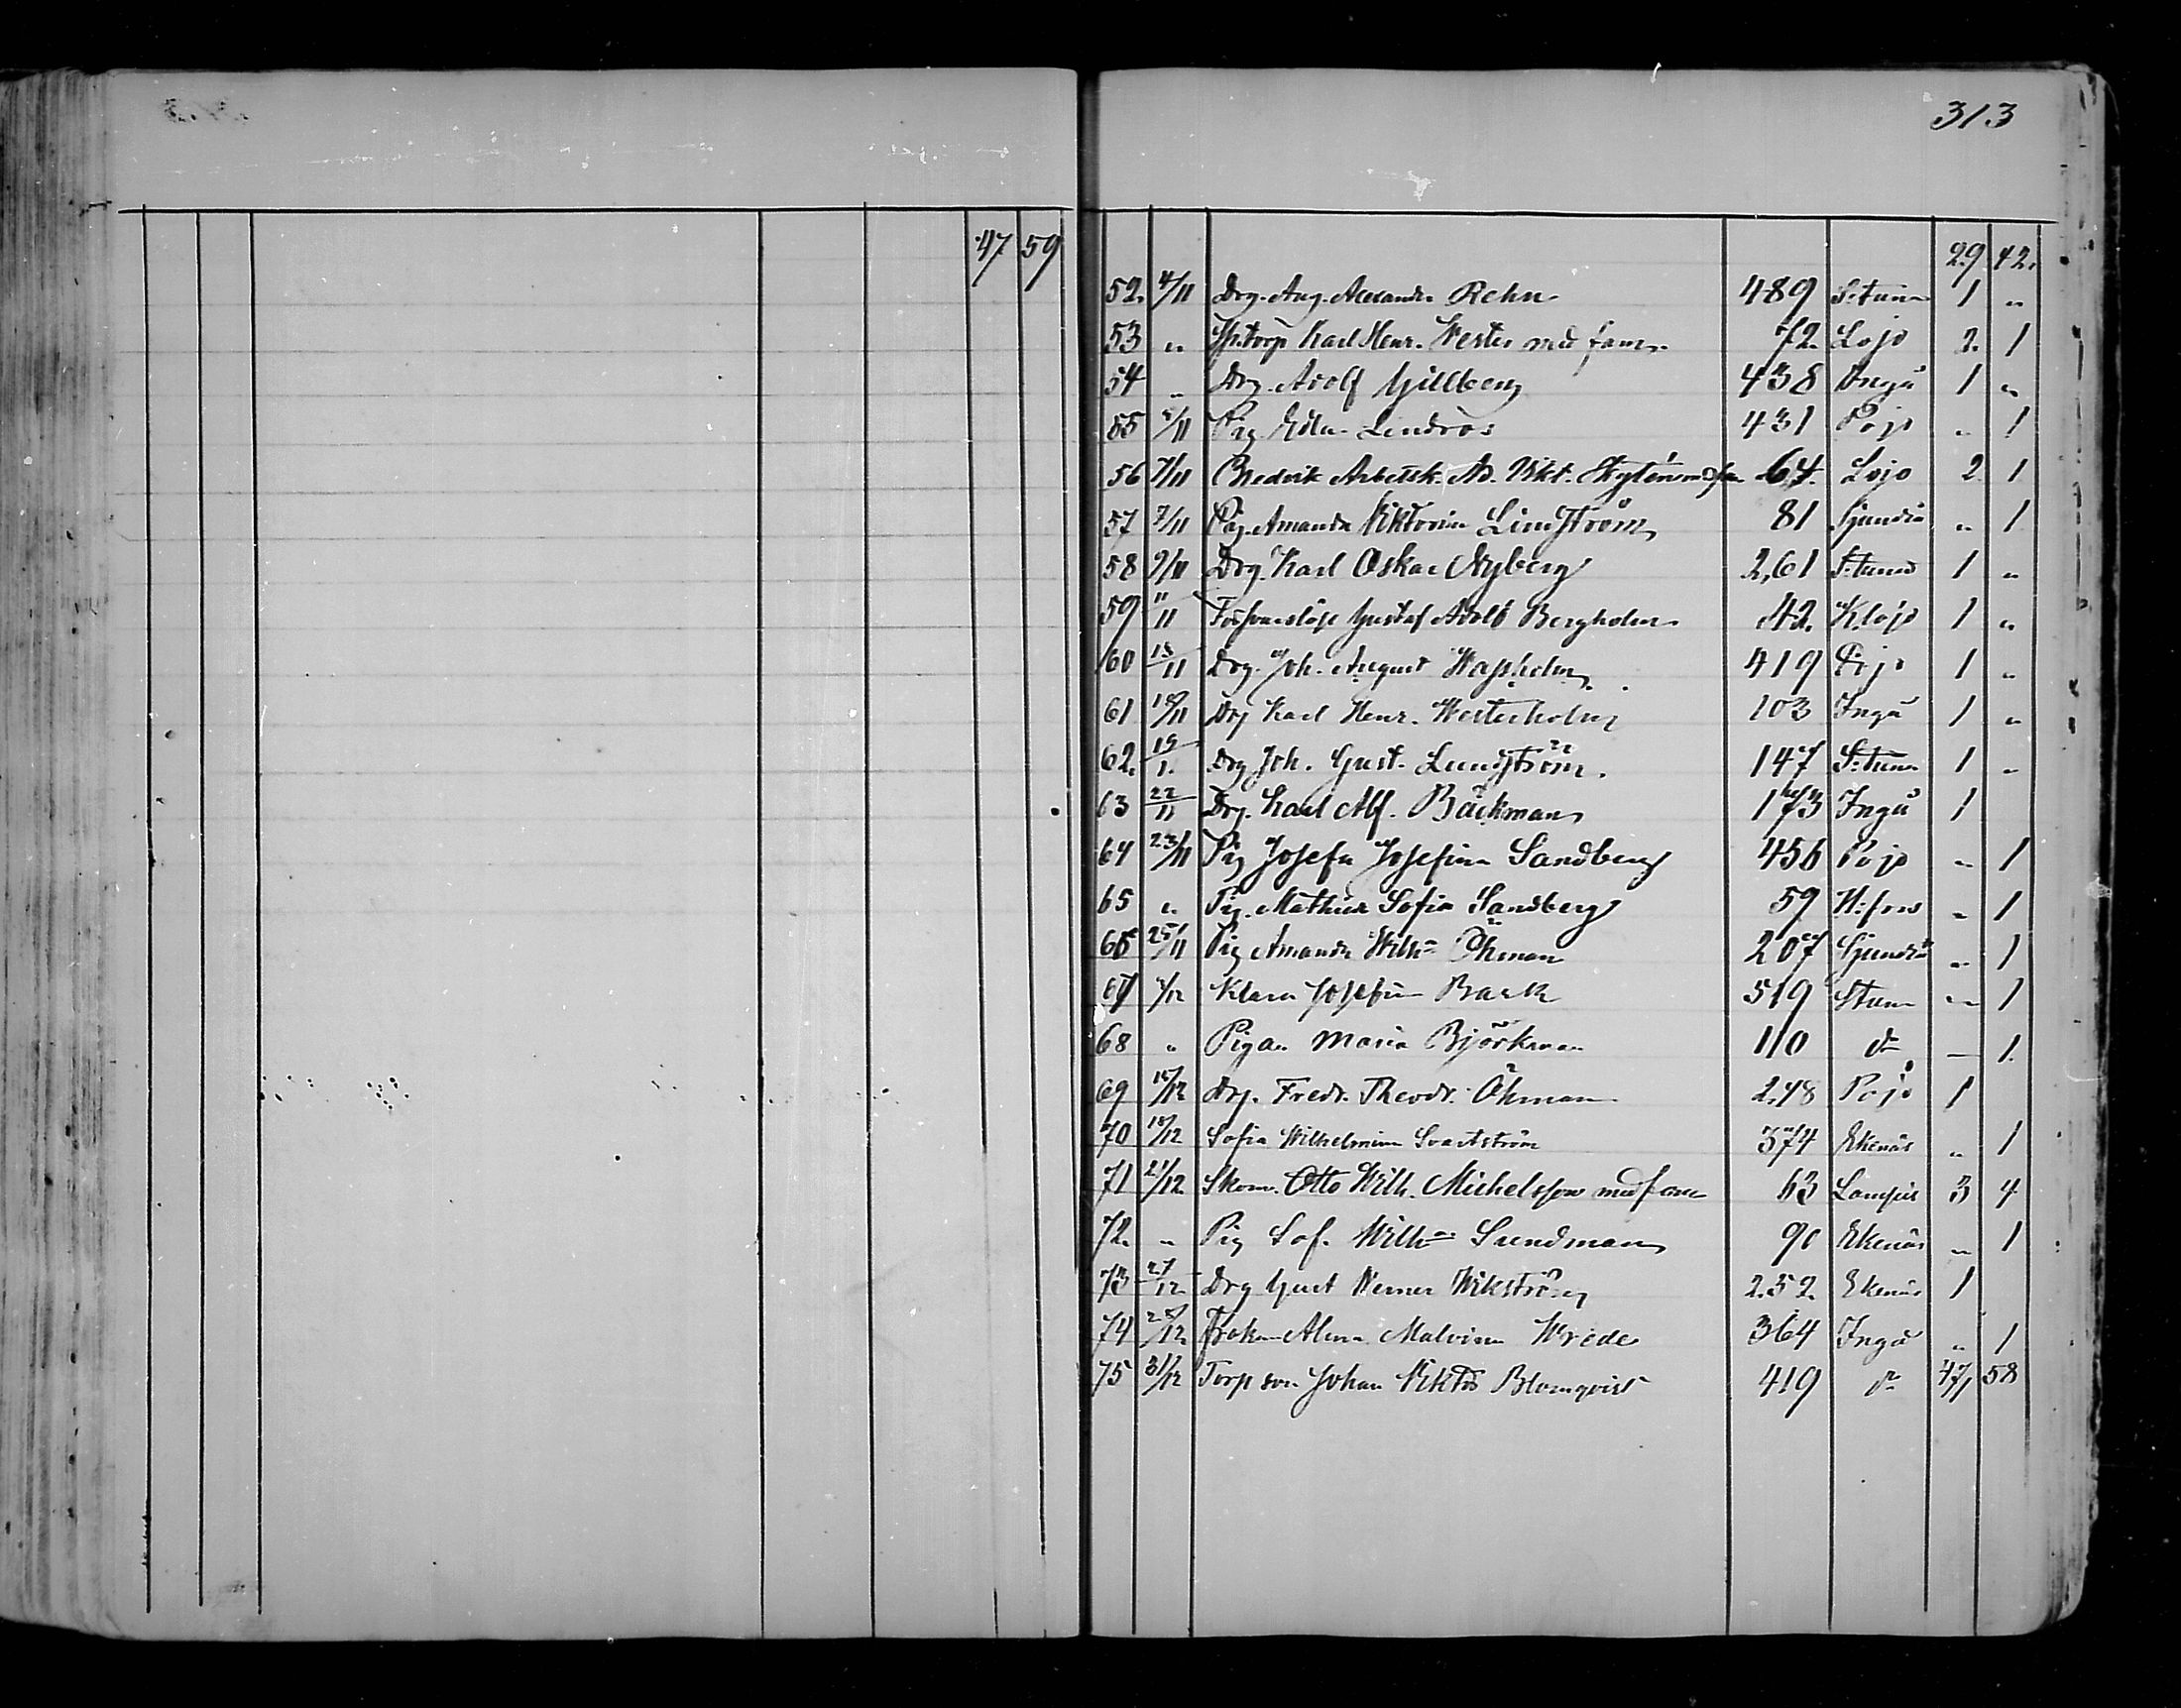 313
47 59
29 42.
52. 4/11 Drg. Aug. Alexander Rehn 489 S:tuna 1 „
53 „ Sp.torp Karl Henr. Wester med fam. 72. Lojo 2. 1
54 „ Drg. Adolf Gillberg 438 Ingå 1 „
55 5/11 Pig. Edla Lindroos 431 Pojo „ 1
56 7/11 Arbetsk. Ad. Vikt. 64. Lojo 2. 1
57 7/11 Pig. Amanda Viktoria Lindström 81 Sjundeå „ 1
58 9/11 Drg. Karl Oskar Nyberg 261 S:tuna 1 „
59 11/11 Försvarslöse Gustaf Adolf Bergholm 42. K.lojo 1 „
60 15/11 Drg. Joh. August Wassholm 419 Pojo 1 „
61 18/11 Drg Karl Henr. Westerholm 103 Ingå 1 „
62. 19/11 Drg Joh. Gust. Lundström. 147 S:tuna 1 „
63 22/11 Drg. Karl Alf. Bäckman 173 Ingå 1
64 23/11 Pig Josefa Josefina Sandberg 456 Pojo „ 1
65 „ Pig. Mathilda Sofia Sandberg 59 H:fors „ 1
66 25/11 Pig Amanda Wilh:a Öhman 207 Sjundeå „ 1
67 /12 Klara Josefina Back 519 S:tuna „ 1
68 „ Pigan Maria Björkman 110 d:o — 1.
69 15/12 Drg. Fredr. Theodr. Öhman 248 Pojo 1
70 18/12 Sofia Wilhelmina Svartström 374 Ekenäs „ 1
71 21/12 Skom. Otto Wilh. Michelsson med fam 63 Lampis 3 4
72. „ Pig Sof. Wilh:a Sundman 90 Ekenäs „ 1
73 27/12 Drg Gust Verner Wikström 252. Ekenäs 1
74 28/12 Fröken Alma Malvina Wrede 364 Ingå „ 1
75 31/12 Torp son Johan Viktor Blomqvist 419 d:o 47 58